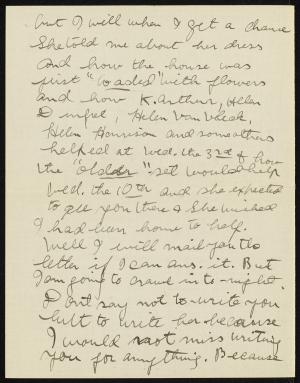 but I will when I get a chance
She told me about her dress
and how the house was
just "loaded" with flowers
and how K. Arthur, Helen
Helen Van Vleck,
Helen Harrison and some others
helped at Wed. the 3rd & how
the "older" set would help
Wed. the 10th and she expected
to see you there & she wished
I had been home to help.
Well I will mail you the
letter if I can ans. it. But
I am going to crawl in to-night.
I don't say not to write you
but to write her because
I would not miss writing
you for anything. Because